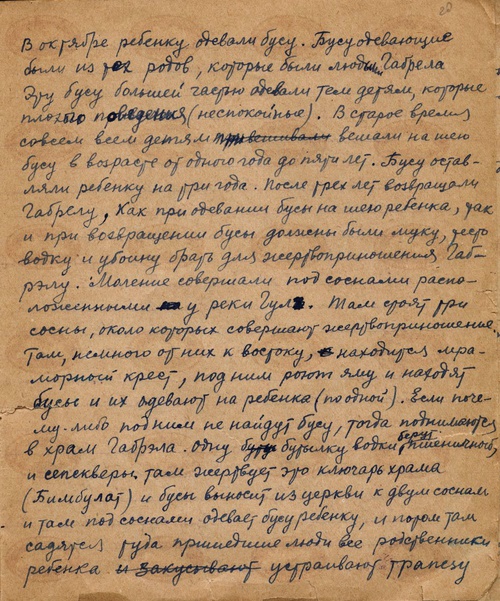 20
В октябре ребенку одевали бусу. Бусу одевающие
были из тех родов, которые были люди Габрела
Эту бусу большей частью одевали тем детям, которые
плохого поведения (неспокойные). В старое время
совсем всем детям привешивали вешали на шею
бусу в возрасте от одного года до пяти лет. Бусу остав-
ляли ребенку на три года. После трех лет возвращали
Габрелу, Как при одевании бусы на шею ребенка, так
и при возвращении бусы должны были муку,
водку и убоину брать для жертвоприношения Габ-
рэлу. Моление совершали под соснами распо-
ложенными у реки Гул. Там стоят три
сосны, около которых совершают жертвоприношение.
Там, немного от них к востоку, находится мра-
морный крест, под ним роют яму и находят
бусы и их одевают на ребенка (по одной). Если поче-
му-либо под ним не найдут бусу, тогда поднимаются
в храм Габрэла. одну бутылку водки берут пшеничной,
и сепскверы. там жертвует это ключарь храма
(Бимбулат) и бусы выносит из церкви к двум соснам
и там под соснами одевает бусу ребенку, и потом там
садятся туда пришедшие люди все родственники
ребенка и закусывают устраивают трапезу